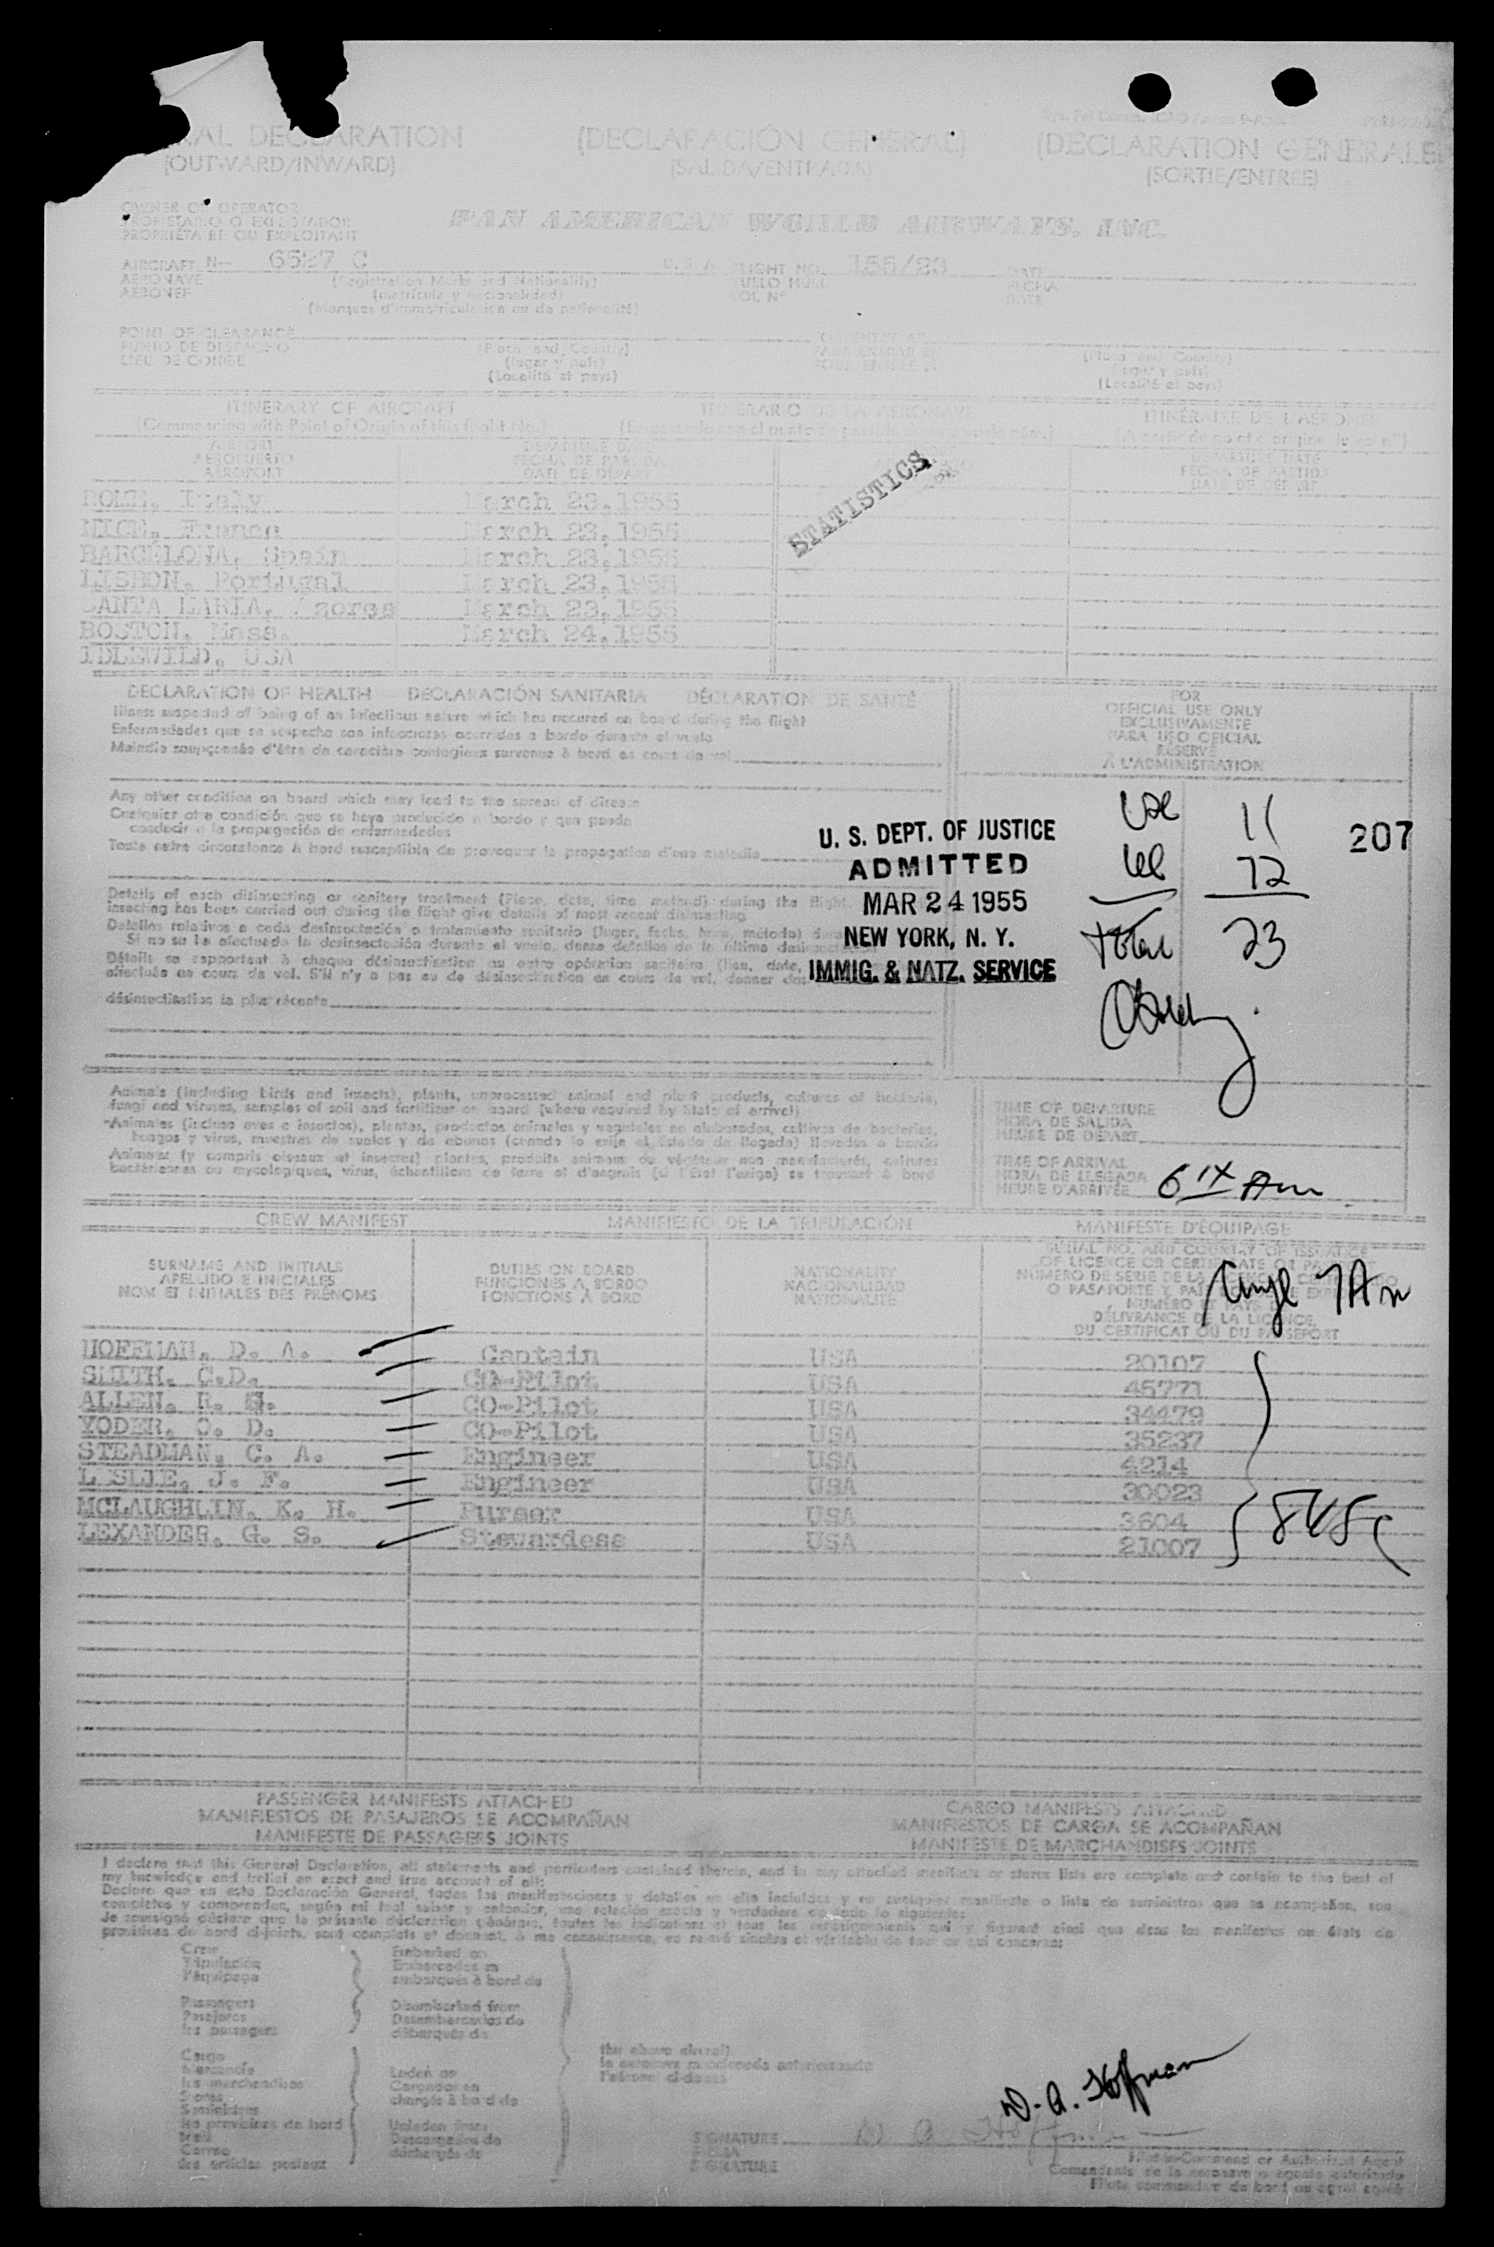 RAL DECLARATION (DECLARACIÓN GENERAL) (DECLARATION GENERALE)
(OUTWARD/INWARD) (SALIDA/ENTRADA) (SORTIE/ENTREE)
OWNER OR OPERATOR
PROPIETARIO O EXPLOTADOR
PROPRIÉTAIRE OU EXPLOITANT
PAN AMERICAN WORLD AIRWAYS, INC.
AIRCRAFT N- 6527 C U.S.A. FLIGHT NO. 155/23 DATE
AERONAVE (Registration Marks and Nationality) VUELO NUM. FECHA
AERONEF (matrícula y nacionalidad) VOL Nº DATE
(Marques d'immatriculation ou de nationalité)
POINT OF CLEARANCE
PUNTO DE DESPACHO (Place and Country) (Place and Country)
LIEU DE CONGE (lugar y país) (lugar y país)
(Localité et pays) (Localité et pays)
ITINERARY OF AIRCRAFT ITINERARIO DE LA AERONAVE ITINÉRAIRE DE L'AÉRONEF
(Commencing with Point of Origin of this flight No.)
AIRPORT DEPARTURE DATE DEPARTURE DATE
AEROPUERTO FECHA DE PARTIDA FECHA DE PARTIDA
AEROPORT DATE DE DEPART DATE DE DEPART
STATISTICS
ROME, Italy March 23,1955
NICE, France March 23,1955
BARCELONA, Spain March 23,1955
LISBON, Portugal March 23,1955
SANTA MARIA, Azores March 23,1955
BOSTON, Mass. March 24,1955
IDLEWILD, USA
DECLARATION OF HEALTH DECLARACIÓN SANITARIA DÉCLARATION DE SANTÉ
Illness suspected of being of an infectious nature which has occured on board during the flight
Enfermedades que se sospecha son infecciosas ocurridas a bordo durante el vuelo
Maladie soupçonnée d'être de caractère contagieux survenue à bord au cours du vol
FOR
OFFICIAL USE ONLY
EXCLUSIVAMENTE
PARA USO OFICIAL
RÉSERVÉ
A L'ADMINISTRATION
Any other condition on board which may lead to the spread of disease
Cualquier otra condición que se haya producido a bordo y que pueda
conducir a la propagación de enfermedades
Toute autre circonstance à bord susceptible de provoquer la propagation d'une maladie
U. S. DEPT. OF JUSTICE
ADMITTED
MAR 24 1955
NEW YORK, N. Y.
IMMIG. & NATZ. SERVICE
11 207
12
total 23
Details of each disinsecting or sanitary treatment (Place, date, time, method) during the flight.
insecting has been carried out during the flight give details of most recent disinsecting
Detalles relativos a cada desinsectación o tratamiento sanitario (lugar, fecha, hora, método)
Si no se ha efectuado la desinsectación durante el vuelo, dense detalles de la última
Détails se rapportant à chaque désinsectisation ou autre opération sanitaire (lieu, date,
effectuée au cours de vol. S'il n'y a pas eu de désinsectisation en cours de vol, donner
désinsectisation la plus récente
Animals (including birds and insects), plants, unprocessed animal and plant products, cultures of bacteria,
fungi and viruses, samples of soil and fertilizer on board (where required by State of arrival)
Animales (incluso aves e insectos), plantas, productos animales y vegetales no elaborados, cultivos de bacterias,
hongos y virus, muestras de suelos y de abonos (cuando lo exija el Estado de llegada) llevados a bordo
Animaux (y compris oiseaux et insectes) plantes, produits animaux ou végétaux non manufacturés, cultures
bactériennes ou mycologiques, virus, échantillons de terre et d'engrais (si l'État l'exige) se trouvant à bord
TIME OF DEPARTURE
HORA DE SALIDA
HEURE DE DEPART
TIME OF ARRIVAL
HORA DE LLEGADA
HEURE D'ARRIVÉE
CREW MANIFEST MANIFIESTO DE LA TRIPULACIÓN MANIFESTE D'ÉQUIPAGE
SURNAME AND INITIALS DUTIES ON BOARD NATIONALITY SERIAL NO. AND COUNTRY OF ISSUANCE
APELLIDO E INICIALES FUNCIONES A BORDO NACIONALIDAD OF LICENCE OR CERTIFICATE OR PA
NOM ET INITIALES DES PRÉNOMS FONCTIONS À BORD NATIONALITÉ NÚMERO DE SERIE DE LA
O PASAPORTE Y PAÍS
NUMÉRO ET PAYS DE
DÉLIVRANCE DE LA LICENCE,
DU CERTIFICAT OU DU PASSEPORT
7 Am
HOFFMAN, D. A. Captain USA 20107
SMITH, C.D. CO-Pilot USA 45771
ALLEN, R. CO-Pilot USA 34479
YODER, O. D. CO-Pilot USA 35237
STEADMAN, C. A. Engineer USA 4214
LESLIE, J. F. Engineer USA 30023
MCLAUGHLIN, K. H. Purser USA 3604
LEXANDER, G. S. Stewardess USA 21007
PASSENGER MANIFESTS ATTACHED CARGO MANIFESTS ATTACHED
MANIFIESTOS DE PASAJEROS SE ACOMPAÑAN MANIFIESTOS DE CARGA SE ACOMPAÑAN
MANIFESTE DE PASSAGERS JOINTS MANIFESTE DE MARCHANDISES JOINTS
I declare that this General Declaration, all statements and particulars contained therein, and in any attached manifests or stores lists are complete and contain to the best of
my knowledge and belief an exact and true account of all:
Declaro que en esta Declaración General, todas las manifestaciones y detalles en ella incluidos y en cualquier manifiesto o lista de suministros que se acompañan, son
completos y comprenden, según mi leal saber y entender, una relación exacta y verdadera de todo lo siguiente:
Je soussigné déclare que la présente déclaration générale, toutes les indications et tous les renseignements qui y figurent ainsi que dans les manifestes ou états de
Crew Embarked on
Tripulación Embarcados en
l'équipage embarqués à bord de
Passengers Disembarked from
Pasajeros Desembarcados de
les passagers débarqués de
Cargo the above aircraft
Mercancía Laden on la aeronave mencionada anteriormente
les marchandises Cargados en l'aéronef ci-dessus
Stores chargés à bord de
Suministros
les provisions de bord Unladen from
Mail Descargados de
Correo déchargés de
des articles postaux
D. A. Hoffman
SIGNATURE D A Hoffman
FIRMA
SIGNATURE
Pilot-in-Command or Authorized Agent
Comandante de la aeronave o agente autorizado
Pilote commandant de bord ou agent agréé